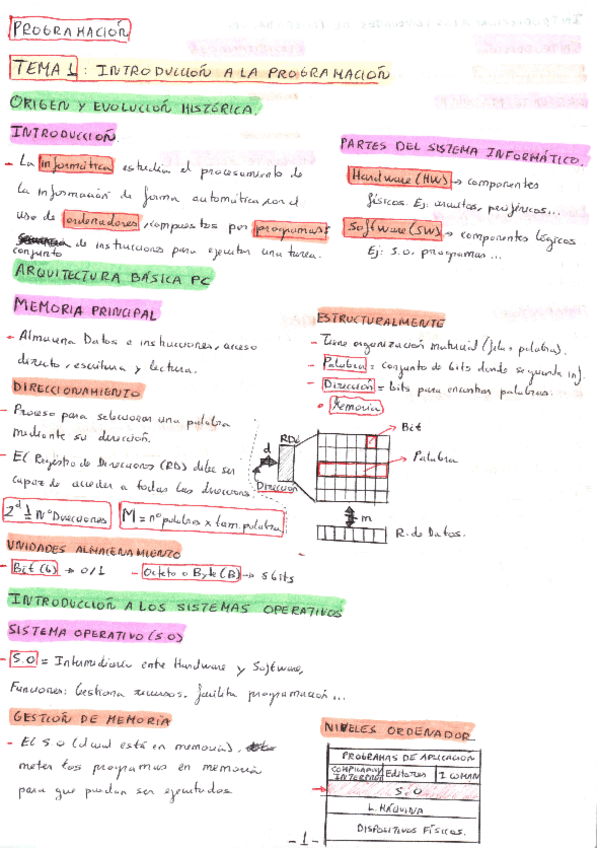 PROGRAMACIÓN
TEMA 1: INTRODUCCIÓN A LA PROGRAMACIÓN
ORIGEN Y EVOLUCIÓN HISTÓRICA.
INTRODUCCIÓN.
- La informática estudia el procesamiento de
la información de forma automática con el
uso de ordenadores, compuestos por programas:
conjunto de instrucciones para ejecutar una tarea.
PARTES DEL SISTEMA INFORMÁTICO.
Hardware (HW) → componentes
físicos. Ej: circuitos, periféricos...
Software (SW) → componentes lógicos
Ej: S.O. programas...
ARQUITECTURA BÁSICA PC
MEMORIA PRINCIPAL
- Almacena Datos e instrucciones, acceso
directo, escritura y lectura.
DIRECCIONAMIENTO
- Proceso para seleccionar una palabra
mediante su dirección.
- El Registro de Direcciones (RD) debe ser
capaz de acceder a todas las direcciones.
2^d = Nº Direcciones
M = nº palabras x tam. palabra
ESTRUCTURALMENTE
- Tiene organización matricial (fila, palabra).
- Palabra = conjunto de bits donde se guarda inf.
- Dirección = bits para encontrar palabras.
• Memoria
Bit
RDi
d
Palabra
Dirección
m
R. de Datos.
UNIDADES ALMACENAMIENTO
- Bit (b) → 0/1 - Octeto o Byte (B) → 8 bits
INTRODUCCIÓN A LOS SISTEMAS OPERATIVOS
SISTEMA OPERATIVO (S.O)
- S.O = Intermediario entre Hardware y Software,
Funciones: Gestiona recursos, facilita programación...
GESTIÓN DE MEMORIA
- El S.O (el cual está en memoria),
meter los programas en memoria
para que puedan ser ejecutados
NIVELES ORDENADOR
PROGRAMAS DE APLICACIÓN
Editores
S.O
L. MÁQUINA
DISPOSITIVOS FÍSICOS.
-1-